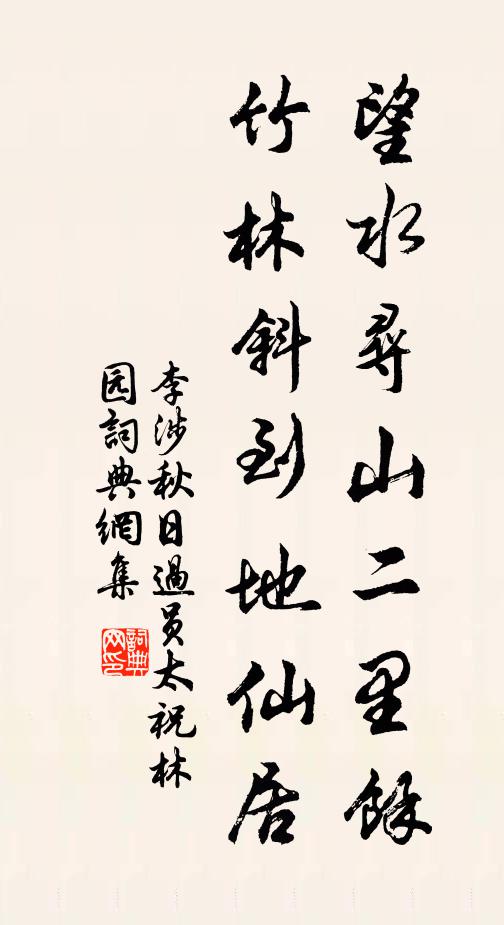 望水尋山二里餘
竹林斜到地仙居
李涉秋日過员太祝林
园詞典網集
詞典
网印